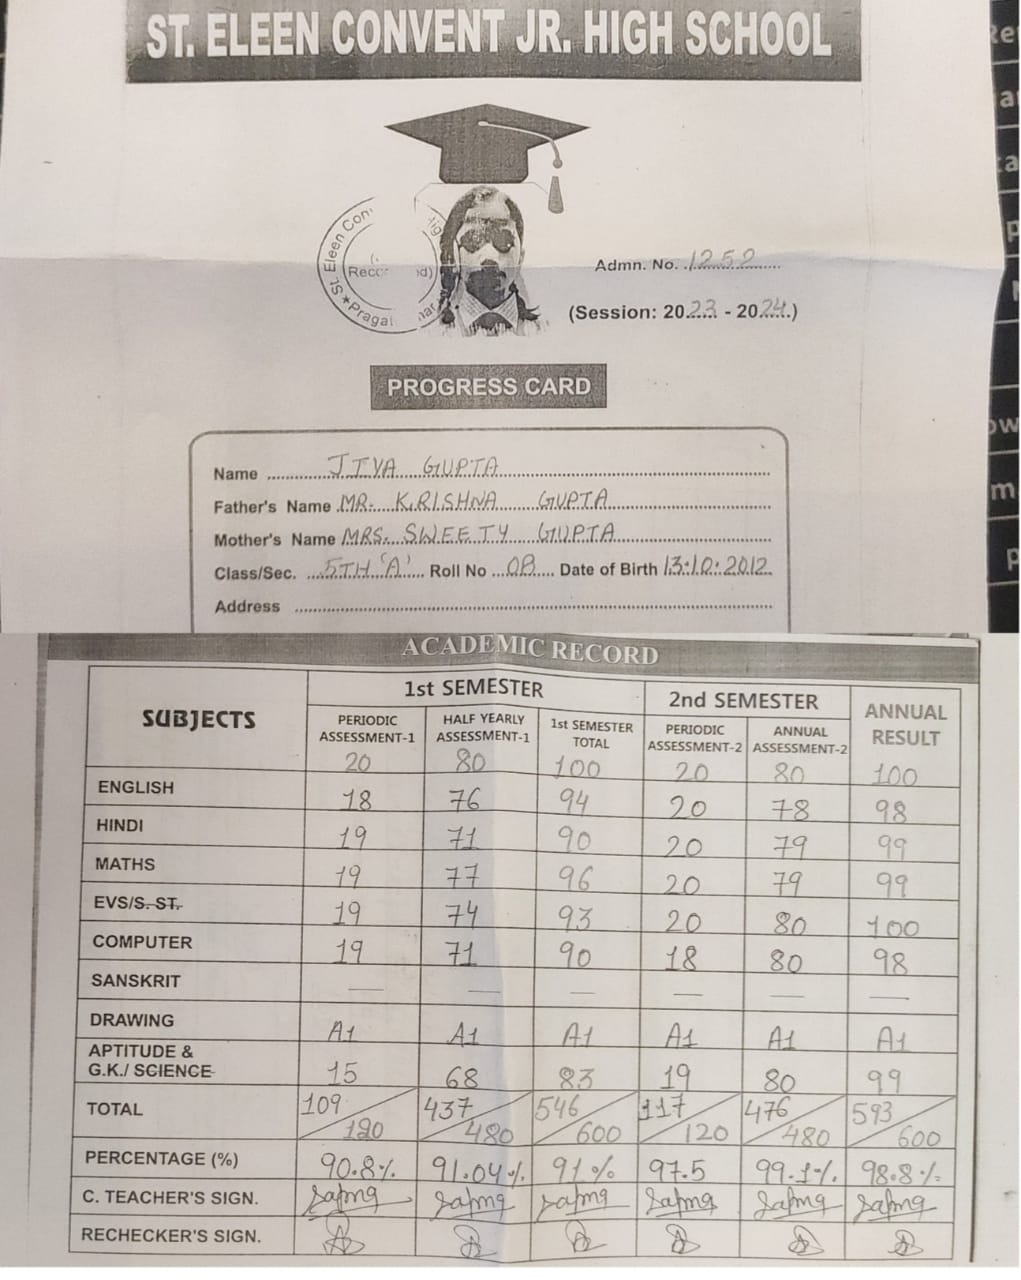 ST. ELEEN CONVENT JR. HIGH SCHOOL
St. Eleen Con
Admn. No. 1252
(Session: 2023 - 2024)
PROGRESS CARD
Name JIYA GUPTA
Father's Name MR. KRISHNA GUPTA
Mother's Name MRS. SWEETY GUPTA
Class/Sec. 5TH 'A' Roll No 08 Date of Birth 13:10:2012
Address
ACADEMIC RECORD
SUBJECTS 1st SEMESTER 2nd SEMESTER ANNUAL RESULT
PERIODIC ASSESSMENT-1 HALF YEARLY ASSESSMENT-1 1st SEMESTER TOTAL PERIODIC ASSESSMENT-2 ANNUAL ASSESSMENT-2
20 80 100 20 80 100
ENGLISH 18 76 94 20 78 98
HINDI 19 71 90 20 79 99
MATHS 19 77 96 20 79 99
EVS/S. ST. 19 74 93 20 80 100
COMPUTER 19 71 90 18 80 98
SANSKRIT — — — — — —
DRAWING A1 A1 A1 A1 A1 A1
APTITUDE &
G.K./ SCIENCE 15 68 83 19 80 99
TOTAL 109/120 437/480 546/600 117/120 476/480 593/600
PERCENTAGE (%) 90.8% 91.04% 91% 97.5 99.1% 98.8%
C. TEACHER'S SIGN.
RECHECKER'S SIGN.